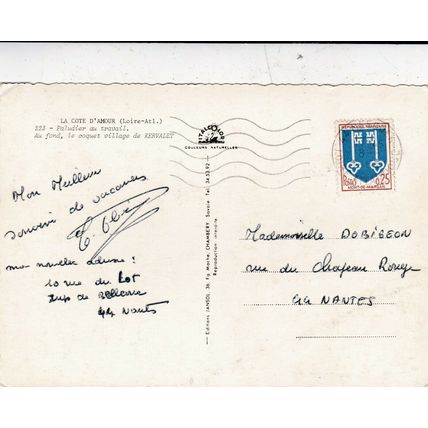 LA COTE D'AMOUR (Loire-Atl.)
223 - Paludier au travail.
Au fond, le coquet village de KERVALET
COULEURS NATURELLES
REPUBLIQUE FRANCAISE
Postes 0,25
MONT-DE-MARSAN
Mon Meilleur
souvenir de vacances
ma nouvelle adresse :
10 rue du Lot
44 Nantes
Editions JANSOL 38, Fg Maché, CHAMBERY Savoie Tel. 34.03.92
Reproduction interdite
Mademoiselle DOBIGEON
rue du Chapeau Rouge
44 NANTES